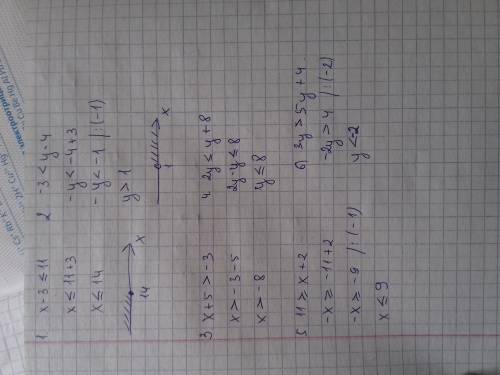 1 x-3≤11
x≤11+3
x≤14
14 x
2 -3<y-4
-y<-4+3
-y<-1 /:(-1)
y>1
1 x
3 x+5>-3
x>-3-5
x>-8
4. 2y≤y+8
2y-y≤8
y≤8
5 11≥x+2
-x≥-11+2
-x≥-9 /:(-1)
x≤9
6) 3y>5y+4
-2y>4 /:(-2)
y<-2